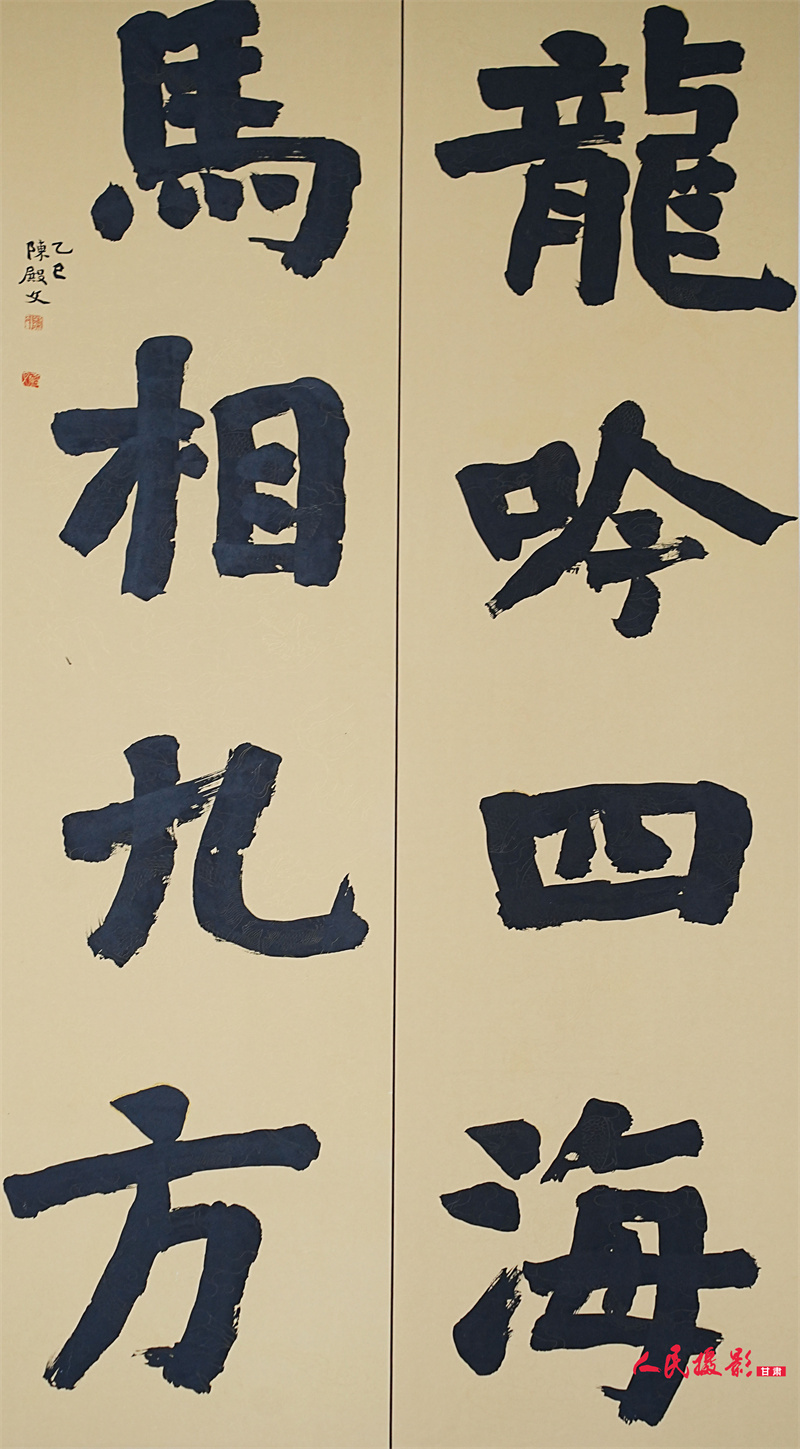 龍吟四海
馬相九方
乙巳
陳殿文
人民攝影
甘肃